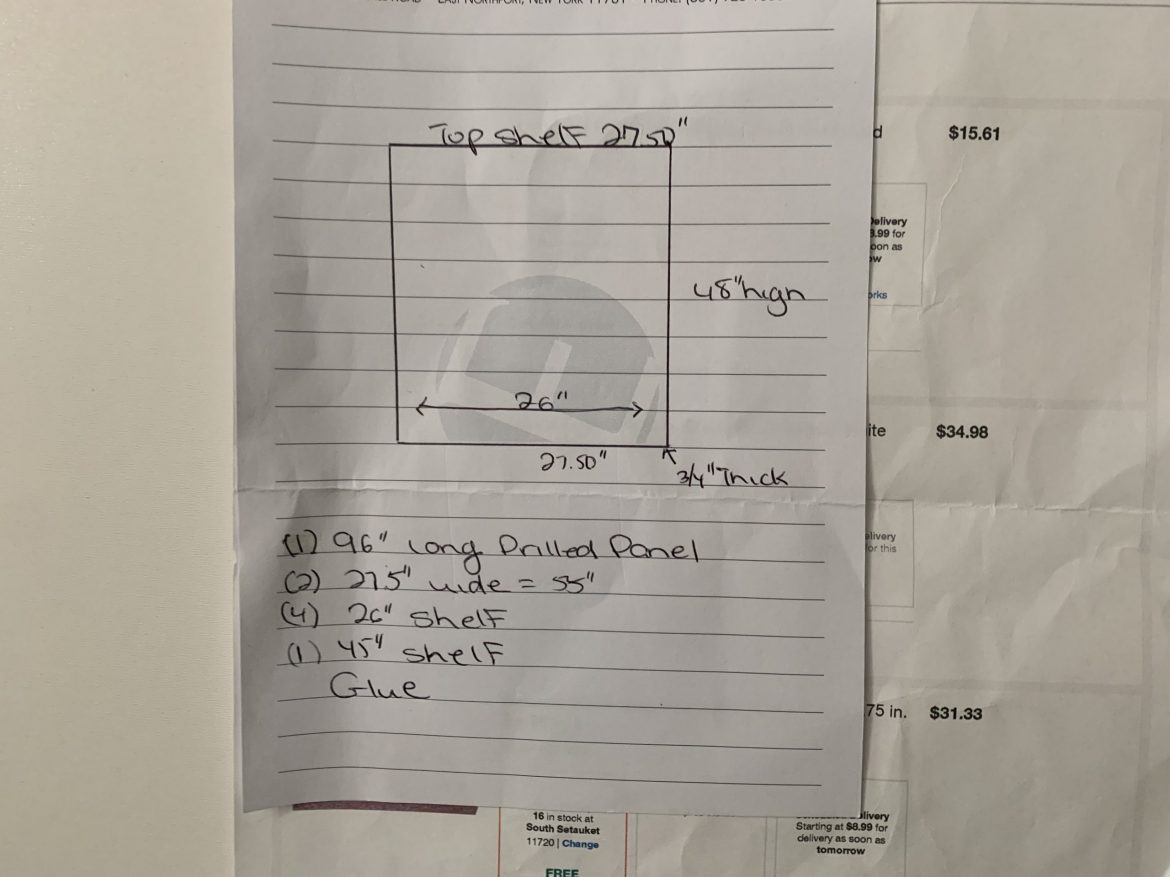 EAST NORTHPORT, NEW YORK
Top Shelf 27.50"
48" high
26"
27.50"
3/4" Thick
(1) 96" Long Drilled Panel
(2) 27.5" wide = 55"
(4) 26" Shelf
(1) 45" Shelf
Glue
d $15.61
elivery
for
oon as
ow
orks
ite $34.98
elivery
for this
75 in. $31.33
16 in stock at
South Setauket
11720 | Change
FREE
livery
Starting at $8.99 for
delivery as soon as
tomorrow